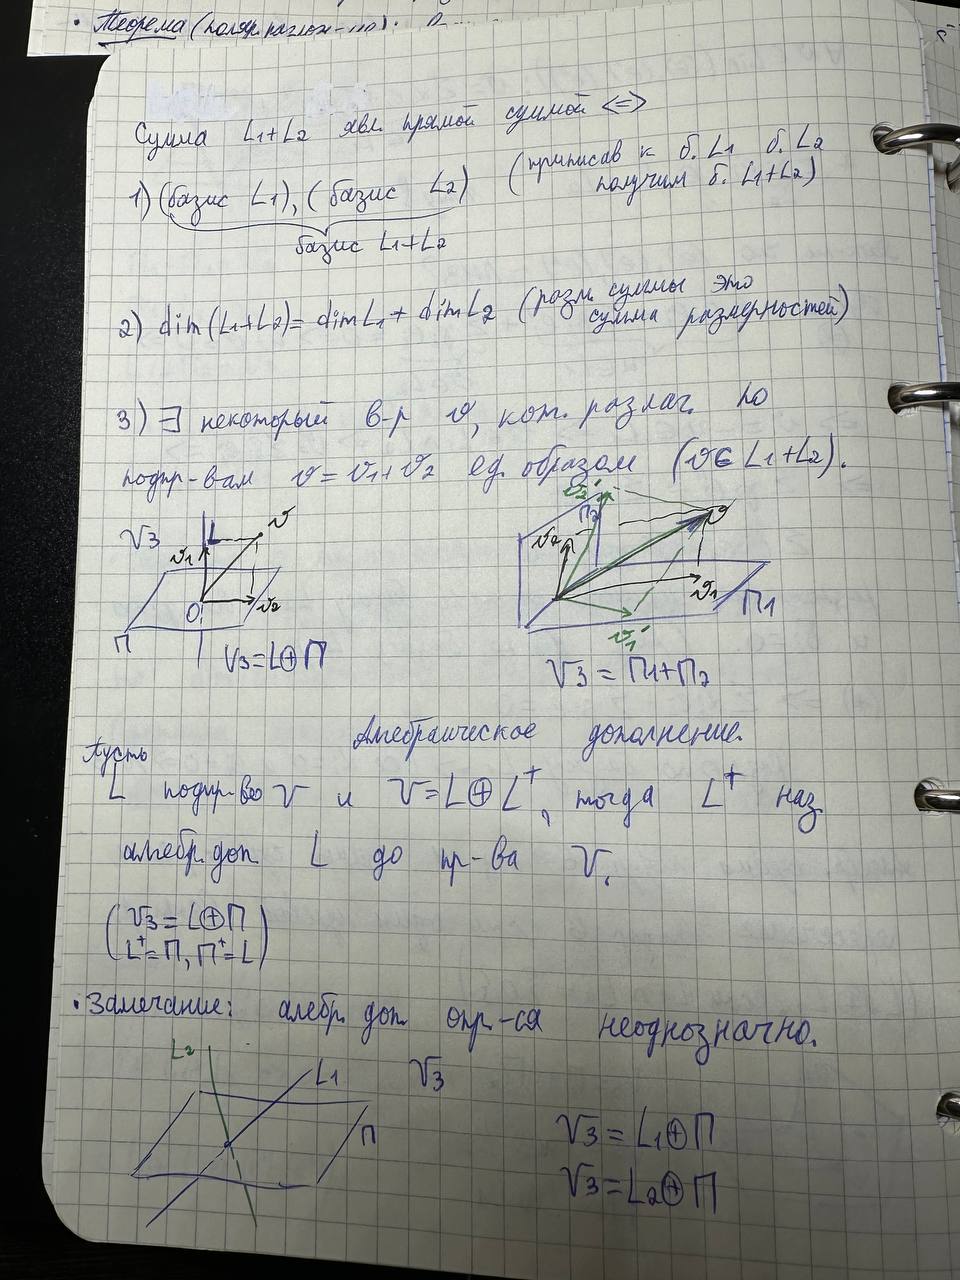 • Теорема (поляр. разлож-ии):
Сумма L₁+L₂ явл. прямой суммой <=>
1) (базис L₁), (базис L₂) (приписав к б. L₁ б. L₂
получим б. L₁+L₂)
базис L₁+L₂
2) dim (L₁+L₂) = dim L₁ + dim L₂ (разм. суммы это
сумма размерностей)
3) ∃ некоторый в-р v, кот. разлаг. по
подпр-вам v = v₁+v₂ ед. образом (v∈L₁+L₂).
V₃ L v
v₁
O v₂
П
V₃=L⊕П
v₂' П₂ v
v₂
v₁ П₁
v₁'
V₃ = П₁+П₂
Алгебраическое дополнение.
Пусть
L подпр-во V и V=L⊕L⁺, тогда L⁺ наз.
алгебр. доп. L до пр-ва V.
(V₃ = L⊕П
L⁺=П, П⁺=L)
• Замечание: алгебр. доп. опр-ся неоднозначно.
L₂ L₁ V₃
П
V₃ = L₁⊕П
V₃ = L₂⊕П